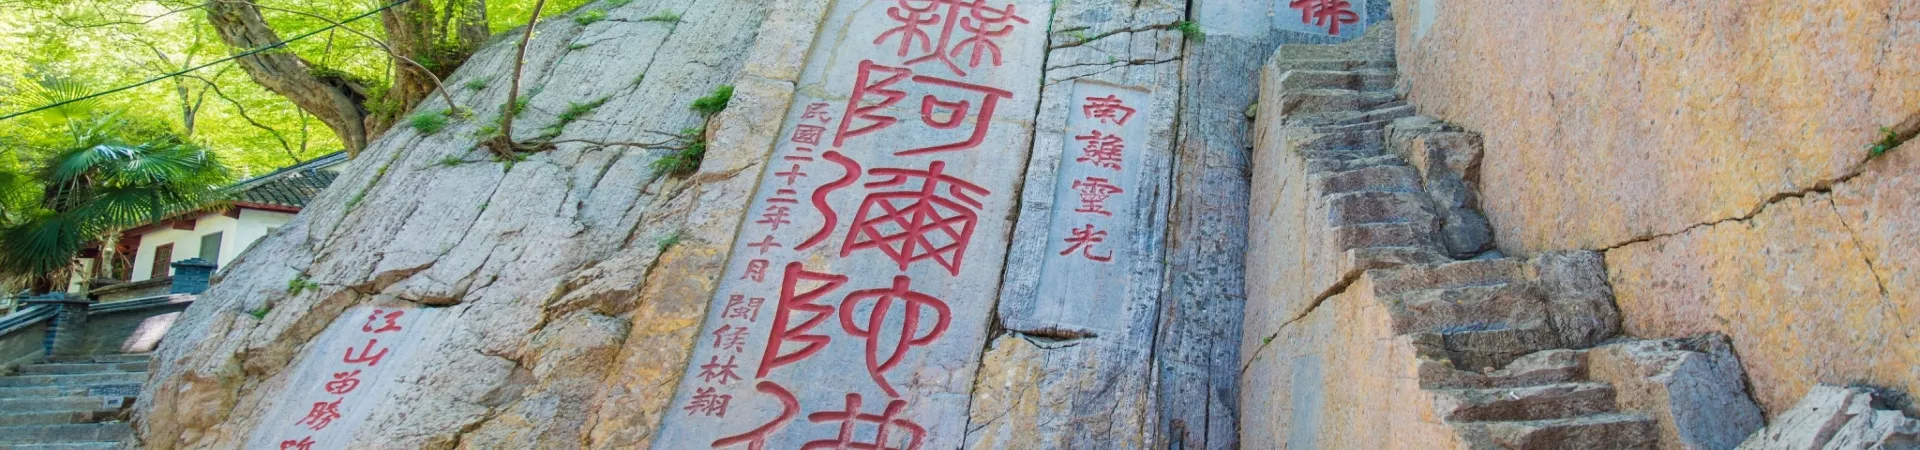 佛
南譙靈光
無阿彌陀佛
民國二十二年十月 閩侯林翔
江山留勝